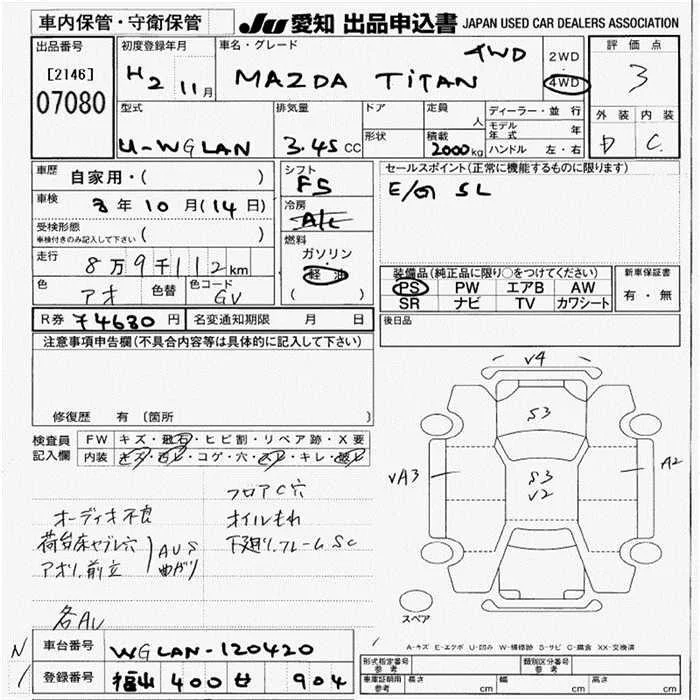 車内保管・守衛保管
JU 愛知 出品申込書 JAPAN USED CAR DEALERS ASSOCIATION
出品番号
[2146]
07080
初度登録年月
H2 11月
車名・グレード
MAZDA TITAN 4WD
2WD
4WD
評価点
3
型式
U-WGLAN
排気量
3.45 CC
ドア
形状
定員
人
積載
2000kg
ディーラー・並行
モデル年式 年
ハンドル 左・右
外装 内装
D C
車歴
自家用・( )
車検
8年10月(14日)
受検形態
車検付きのみ記入して下さい ( )
走行
8万9千112km
色
アオ
色替
色コード
GV
シフト
F5
冷房
A/C
燃料
ガソリン
・
軽油
( )
セールスポイント(正常に機能するものに限ります)
E/G SL
装備品(純正品に限り○をつけてください)
PS PW エアB AW
SR ナビ TV カワシート
新車保証書
有・無
R券 ¥4630円
名変通知期限 月 日
後日品
注意事項申告欄(不具合内容等は具体的に記入して下さい)
修復歴 有 〔箇所
検査員記入欄
FW キズ・飛石・ヒビ割・リペア跡・X要
内装 キズ・汚レ・コゲ・穴・スレ・キレ・破レ
フロアC穴
オーディオ不良
オイルもれ
荷台床セブレ穴
アオリ、前立
AUS
曲がり
下廻り、フレームSC
各AU
V4
S3
S3
V2
VA3
A2
スペア
A-キズ E-エクボ U-凹み W-補修跡 S-サビ C-腐食 XX-交換済
N
車台番号 WGLAN-120420
登録番号 福山 400 せ 904
型式指定番号
参考
類別区分番号
参考
車庫証明用
参考
長さ cm
幅 cm
高さ cm